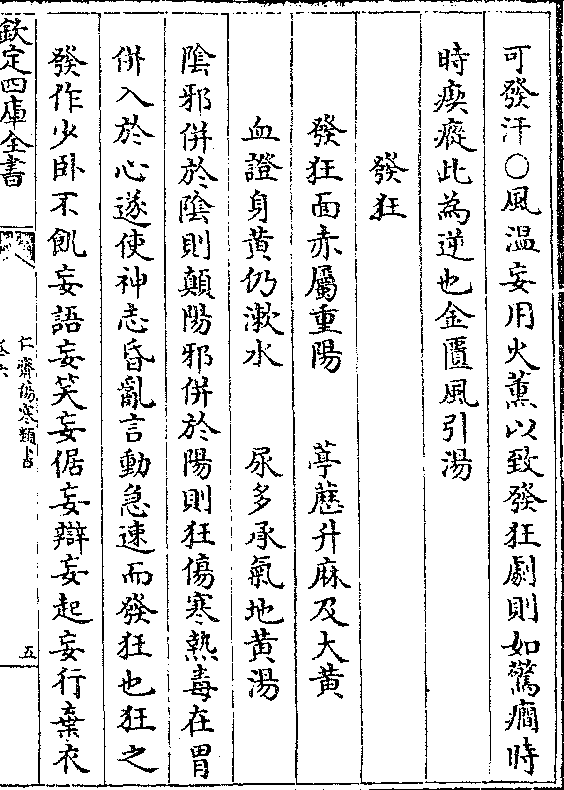 可發汗○風溫妄用火薰以致發狂劇則如驚癎時
時瘈瘲此為逆也金匱風引湯
發狂
發狂面赤屬重陽　葶藶升麻及大黃
血證身黃仍漱水　尿多承氣地黃湯
陰邪併於陰則顛陽邪併於陽則狂傷寒熱毒在胃
併入於心遂使神志昏亂言動急速而發狂也狂之
發作少卧不飢妄語妄笑妄倨妄辯妄起妄行棄衣
欽定四庫全書
仁齋傷寒類書
卷六
五